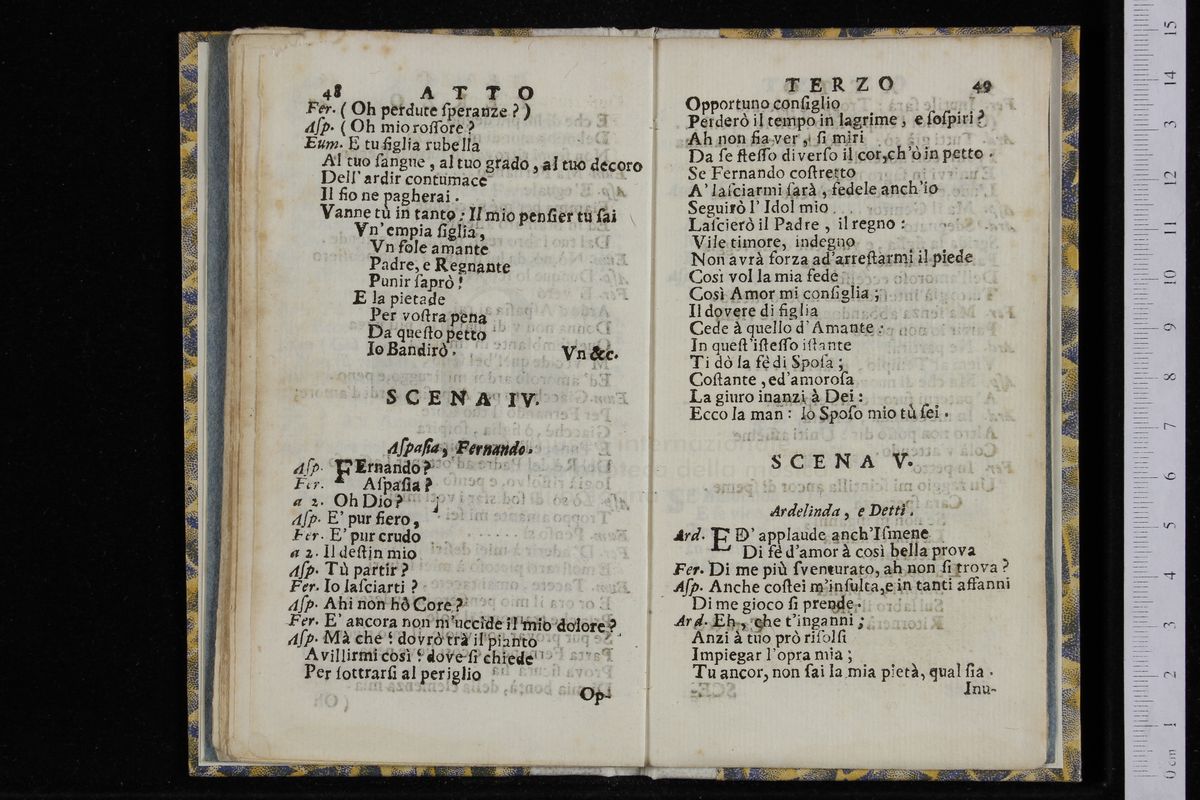 48 ATTO
Fer. ( Oh perdute ſperanze ? )
Aſp. ( Oh mio roſſore ?
Eum. E tu figlia rubella
Al tuo ſangue , al tuo grado , al tuo decoro
Dell' ardir contumace
Il fio ne pagherai .
Vanne tù in tanto : Il mio penſier tu ſai
Vn' empia figlia ,
Vn fole amante
Padre, e Regnante
Punir ſaprò !
E la pietade
Per voſtra pena
Da queſto petto
Io Bandirò . Vn &c.
SCENA IV.
Aſpaſia, Fernando.
Aſp. FErnando ?
Fer. Aſpaſia ?
a 2. Oh Dio ?
Aſp. E' pur fiero ,
Fer. E' pur crudo
a 2. Il deſtin mio
Aſp. Tù partir ?
Fer. Io laſciarti ?
Aſp. Ahi non hò Core ?
Fer. E' ancora non m'uccide il mio dolore ?
Aſp. Mà che ! dovrò trà il pianto
Avillirmi così ! dove ſi chiede
Per ſottrarſi al periglio
Op-
TERZO 49
Opportuno configlio
Perderò il tempo in lagrime , e ſoſpiri ?
Ah non ſia ver , ſi miri
Da ſe ſteſſo diverſo il cor, ch'ò in petto .
Se Fernando coſtretto
A' laſciarmi ſarà , fedele anch'io
Seguirò l' Idol mio
Laſcierò il Padre , il regno :
Vile timore, indegno
Non avrà forza ad'arreſtarmi il piede
Così vol la mia fede
Così Amor mi configlia ;
Il dovere di figlia
Cede à quello d' Amante :
In queſt'iſteſſo iſtante
Ti dò la fè di Spoſa ;
Coſtante , ed'amoroſa
La giuro inanzi à Dei :
Ecco la man : lo Spoſo mio tù ſei .
SCENA V.
Ardelinda, e Detti.
Ard. ED' applaude anch'Iſmene
Di fè d'amor à così bella prova
Fer. Di me più ſventurato, ah non ſi trova ?
Aſp. Anche coſtei m'inſulta, e in tanti affanni
Di me gioco ſi prende .
Ard. Eh , che t'inganni ;
Anzi à tuo prò riſolſi
Impiegar l'opra mia ;
Tu ancor, non ſai la mia pietà, qual ſia .
Inu-